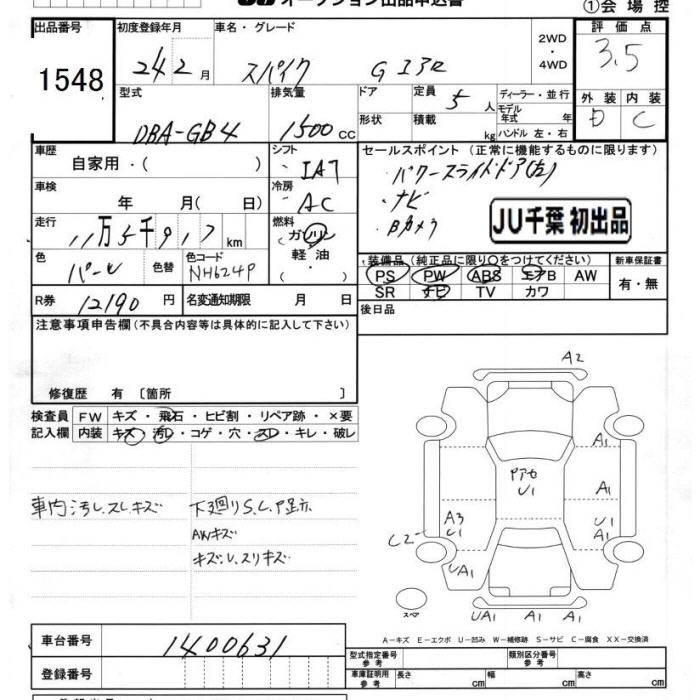 オークション出品申込書
①会場控
出品番号 初度登録年月 車名・グレード 2WD ・ 4WD 評価点
1548 24 2月 スパイク G エアロ 3.5
型式 排気量 ドア 定員 5人 ディーラー・並行 外装 内装
DBA-GB4 1500cc 形状 積載 kg モデル年式 年 ハンドル 左・右 D C
車歴 自家用・( ) シフト IAT
セールスポイント (正常に機能するものに限ります)
・パワースライドドア(左)
・ナビ
・Bカメラ
JU千葉 初出品
車検 年 月( 日) 冷房 AC
走行 11万5千917km 燃料 ガソリン 軽油 ・
色 パール 色替 色コード NH624P
装備品 (純正品に限り○をつけてください) 新車保証書
PS PW ABS エアB AW 有・無
SR ナビ TV カワ
R券 12190円 名変通知期限 月 日
後日品
注意事項申告欄 (不具合内容等は具体的に記入して下さい)
修復歴 有 〔箇所 〕
検査員記入欄 FW キズ・飛石・ヒビ割・リペア跡・×要
内装 キズ・汚レ・コゲ・穴・スレ・キレ・破レ
車内汚レ.スレ.キズ
下廻りS.C.
AWキズ
キズ.U.スリキズ
A2
A1
U1
A1
A3
U1
U1
A1
C2
UA1
スペア
UA1 A1 A1
A-キズ E-エクボ U-凹み W-補修跡 S-サビ C-腐食 XX-交換済
車台番号 1400631
登録番号
型式指定番号 参考 類別区分番号 参考
車庫証明用 参考 長さ cm 幅 cm 高さ cm